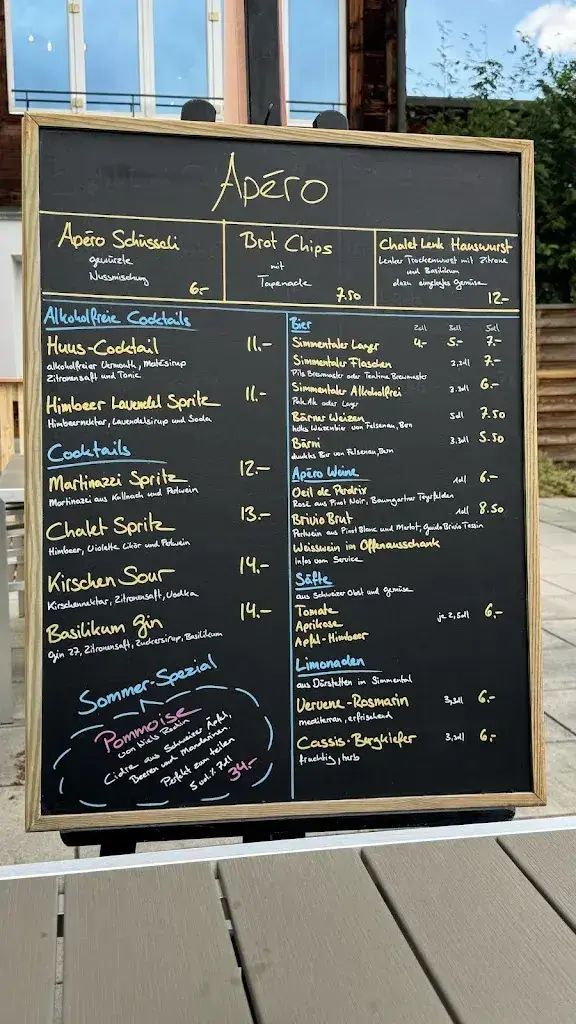 Apéro
Apéro Schüsseli
gewürzte
Nussmischung
6.-
Brot Chips
mit
Tapenade
7.50
Chalet Lenk Hauswurst
Lenker Trockenwurst mit Zitrone
und Basilikum
dazu eingelegtes Gemüse
12.-
Alkoholfreie Cocktails
Huus-Cocktail 11.-
alkoholfreier Vermouth, Matésirup
Zitronensaft und Tonic
Himbeer Lavendel Spritz 11.-
Himbeernektar, Lavendelsirup und Soda
Cocktails
Martinazzi Spritz 12.-
Martinazzi aus Kallnach und Perlwein
Chalet Spritz 13.-
Himbeer, Violette Likör und Perlwein
Kirschen Sour 14.-
Kirschennektar, Zitronensaft, Vodka
Basilikum Gin 14.-
Gin 27, Zitronensaft, Zuckersirup, Basilikum
Sommer-Spezial
Pommoise
von Niels Rodin
Cidre aus Schweizer Äpfel,
Beeren und Mandarinen.
Perfekt zum teilen
5 vol.% 7dl 34.-
Bier 2dl 3dl 5dl
Simmentaler Lager 4.- 5.- 7.-
Simmentaler Flaschen 3.3dl 7.-
Pils Braumeister oder Braumeister
Simmentaler Alkoholfrei 3.3dl 6.-
Pale Ale oder Lager
Bärner Weizen 5dl 7.50
helles Weizenbier von Felsenau, Bern
Bärni 3.3dl 5.50
dunkles Bier von Felsenau, Bern
Apéro Weine
Oeil de Perdrix 1dl 6.-
Rosé aus Pinot Noir, Baumgartner Tegerfelden
Brivio Brut 1dl 8.50
Perlwein aus Pinot Blanc und Merlot, Guido Brivio Tessin
Weisswein im Offenausschank
Infos vom Service
Säfte
aus Schweizer Obst und Gemüse
Tomate
Aprikose je 2,5dl 6.-
Apfel-Himbeer
Limonaden
aus Därstetten im Simmental
Verveine-Rosmarin 3,3dl 6.-
mediterran, erfrischend
Cassis-Bergkiefer 3,3dl 6.-
fruchtig, herb